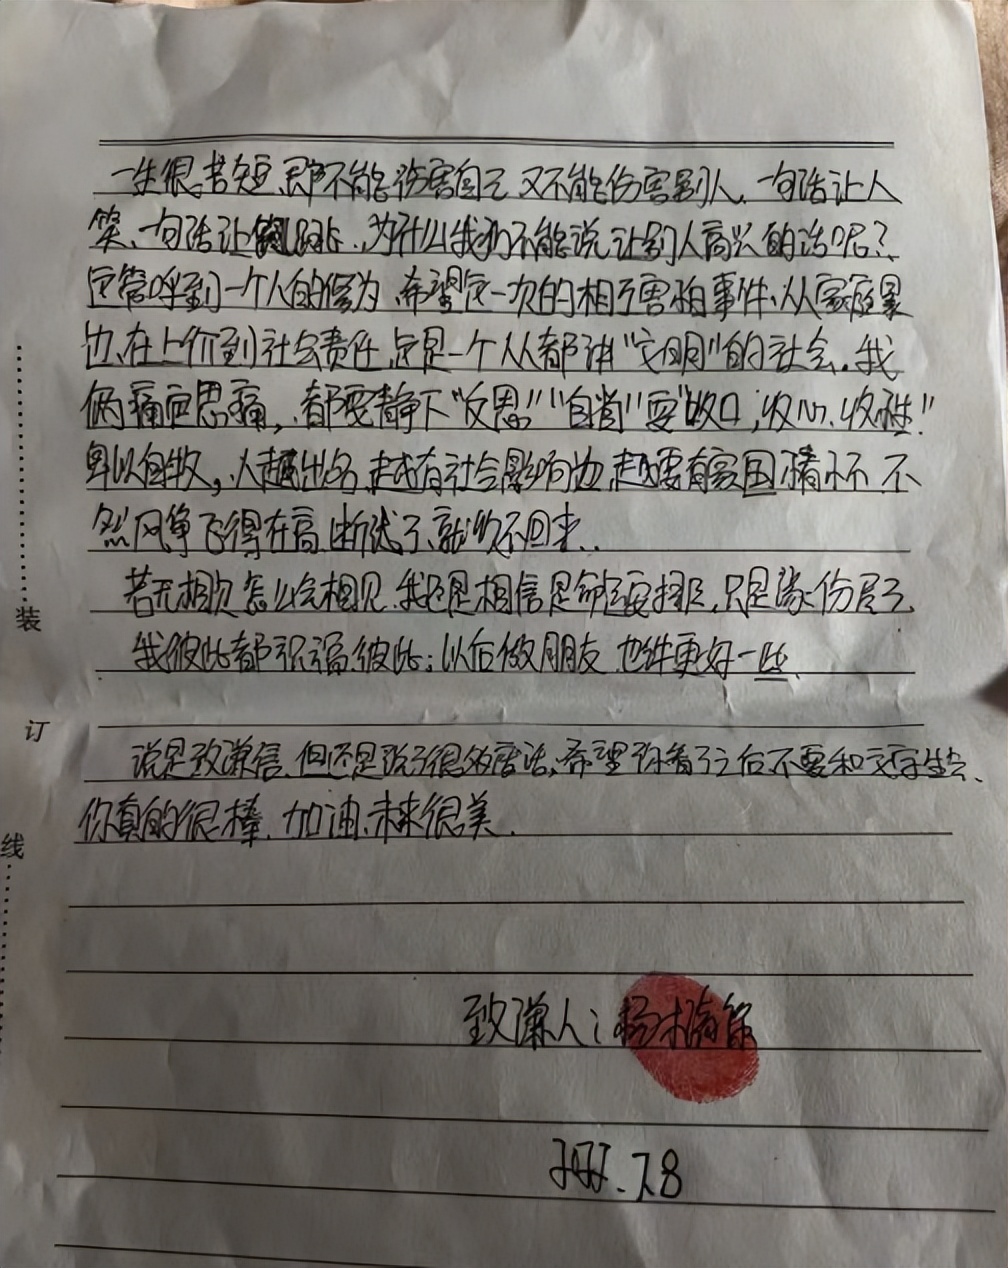 一生很苦短,即不能伤害自己又不能伤害别人,一句话让人
笑、一句话让 跳,为什么我们不能说让别人高兴的话呢?
这管呼到一个人的修为,希望这一次的相互害怕事件,从家庭暴
边,在上价到社会责任,这是一个人人都讲“文明”的社会。我
俩痛定思痛,都要静下“反思”“自省”要“收口,收心,收性”!
卑以自牧,人越出名,越有社会影响边,越要有家国情怀,不
然风争飞得在高,断线了,就收不回来..
若无相欠怎么会相见,我还是相信是命定要 ,只是缘份尽了,
我彼此都祝福彼此;以后做朋友,也许更好一些.
说是致谦信,但还是说了很多废话,希望你看了之后不要和文字生气、
你真的很棒,加油,未来很美.
致谦人:杨
7.8
装
订
线